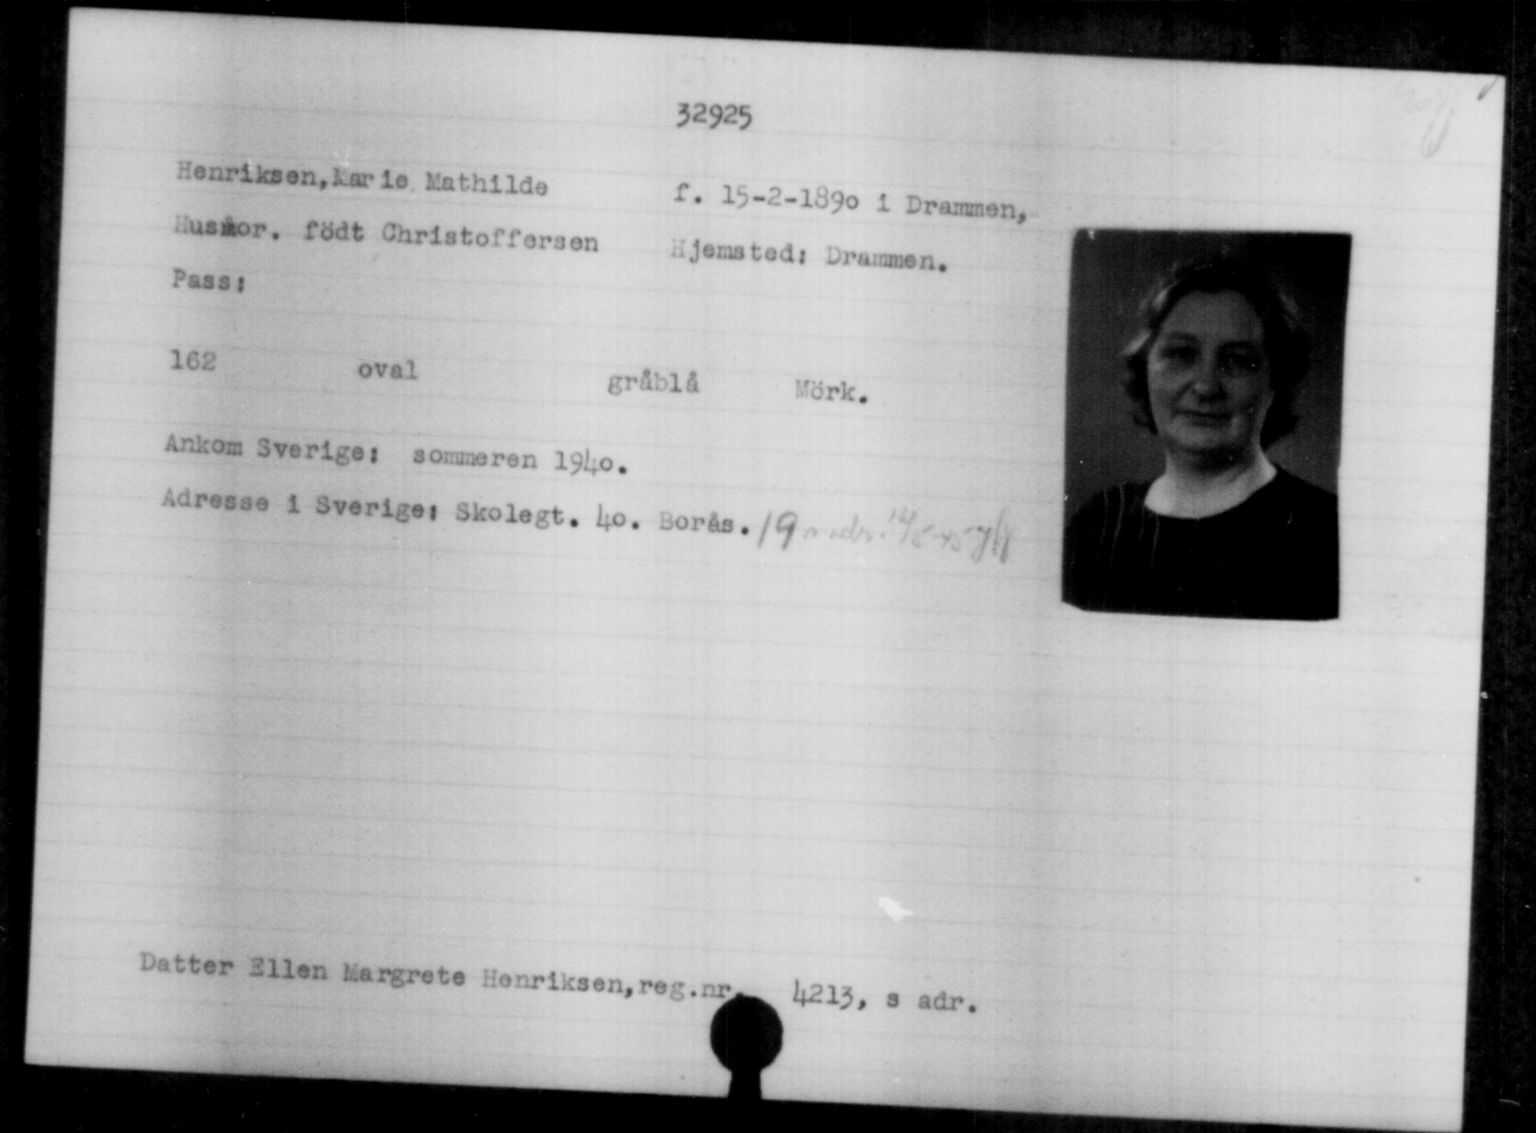 32925
Henriksen, Marie Mathilde f. 15-2-1890 i Drammen,
Husmor. född Christoffersen Hjemsted: Drammen.
Pass:
162 oval gråblå Mörk.
Ankom Sverige: sommeren 1940.
Adresse i Sverige: Skolegt. 40. Borås. 19
Datter Ellen Margrete Henriksen, reg.nr. 4213, s adr.